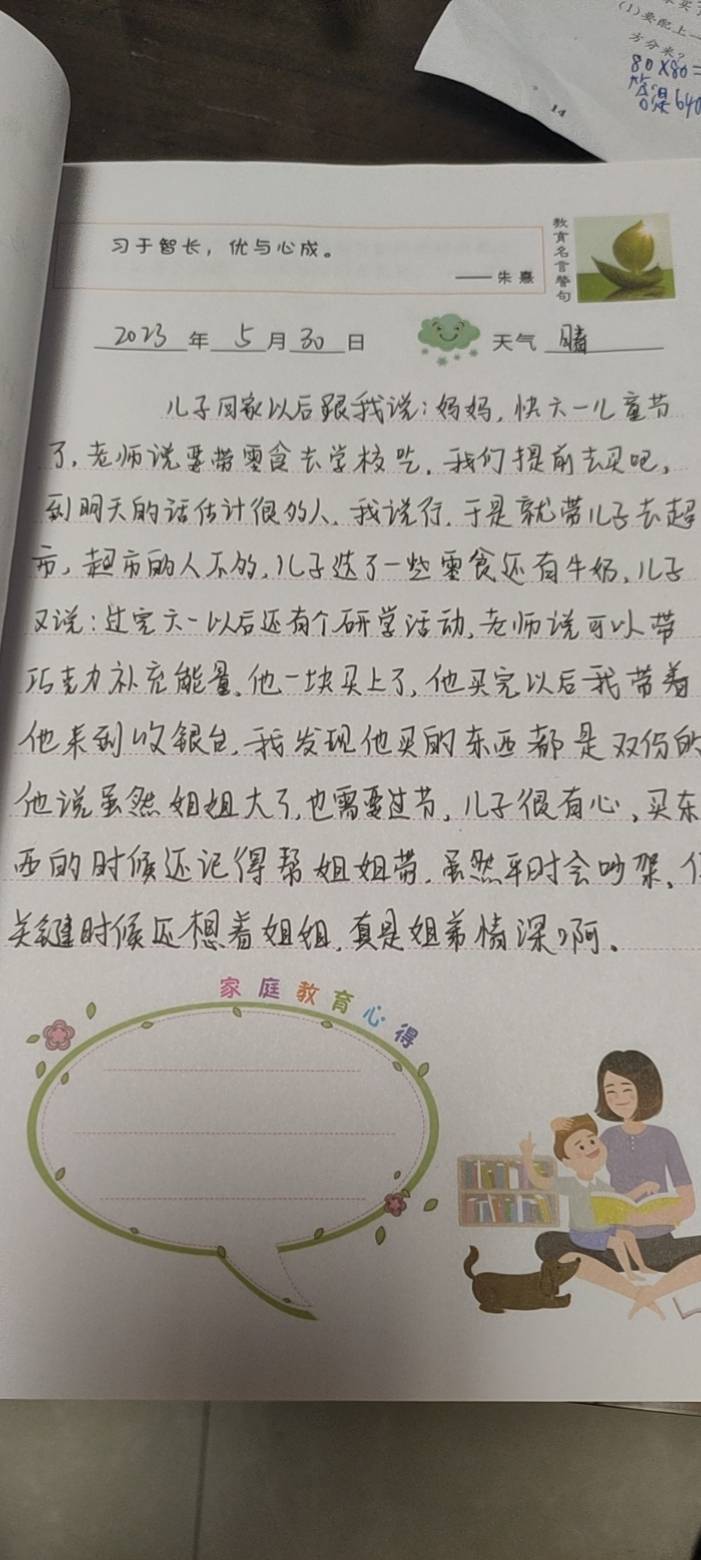 习于智长，优与心成。
——朱熹
教育名言警句
2023年5月30日 天气 晴
儿子回家以后跟我说：妈妈，快六一儿童节
了，老师说要带零食去学校吃，我们提前去买吧，
到明天的话估计很多人，我说行，于是就带儿子去超
市，超市的人不多，儿子选了一些零食还有牛奶，儿子
又说：过完六一以后还有个研学活动，老师说可以带
巧克力补充能量。他一块买上了，他买完以后我带着
他来到收银台，我发现他买的东西都是双份的
他说虽然姐姐大了，也需要过节，儿子很有心，买东
西的时候还记得帮姐姐带，虽然平时会吵架，
关键时候还想着姐姐，真是姐弟情深啊。
家庭教育心得
(1)要配上一
方分米？
80×80=
答:是640
14